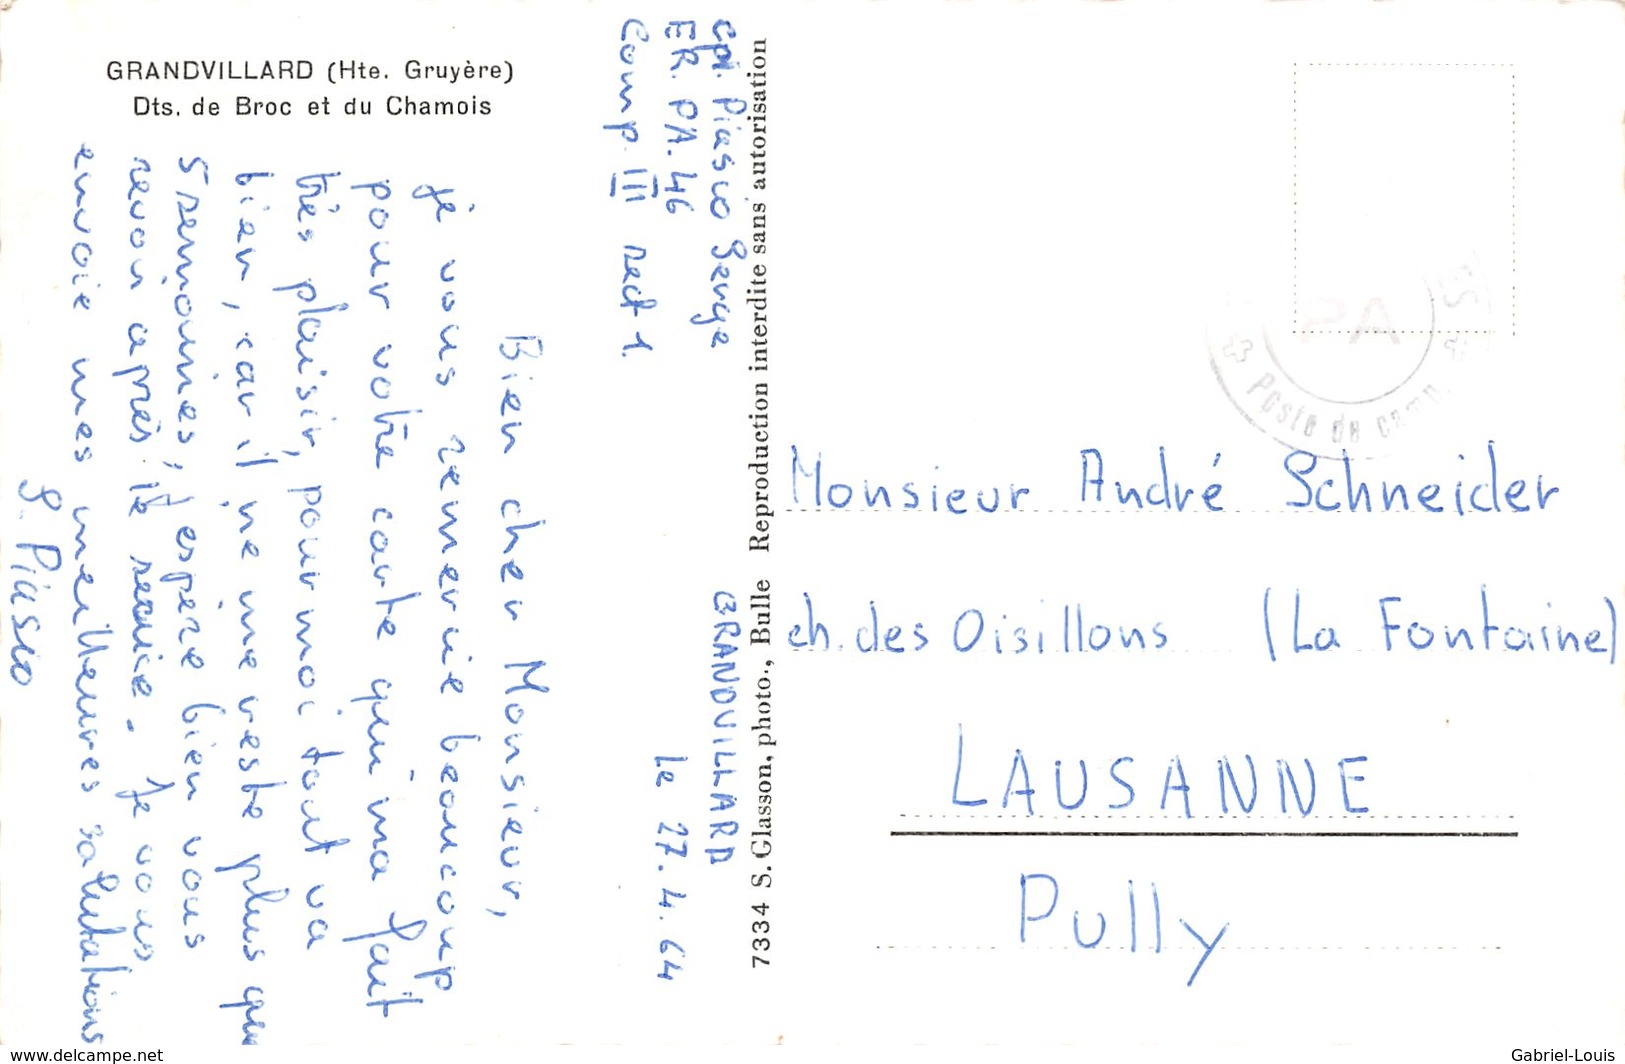 GRANDVILLARD (Hte. Gruyère)
Dts. de Broc et du Chamois
cpl. Piasio Serge
ER. PA. 46
Comp. III sect 1.
GRANDVILLARD
Le 27.4.64
Bien cher Monsieur,
je vous remercie beaucoup
pour votre carte qui ma fait
très plaisir, pour moi tout va
bien, car il ne me reste plus que
5 semaines, j'espère bien vous
revoir après le service. Je vous
envoie mes meilleures salutations
S. Piasio
7334 S. Glasson, photo., Bulle Reproduction interdite sans autorisation
PA
Poste de camp.
Monsieur André Schneider
ch. des Oisillons (La Fontaine)
LAUSANNE
Pully
www.delcampe.net
Gabriel-Louis